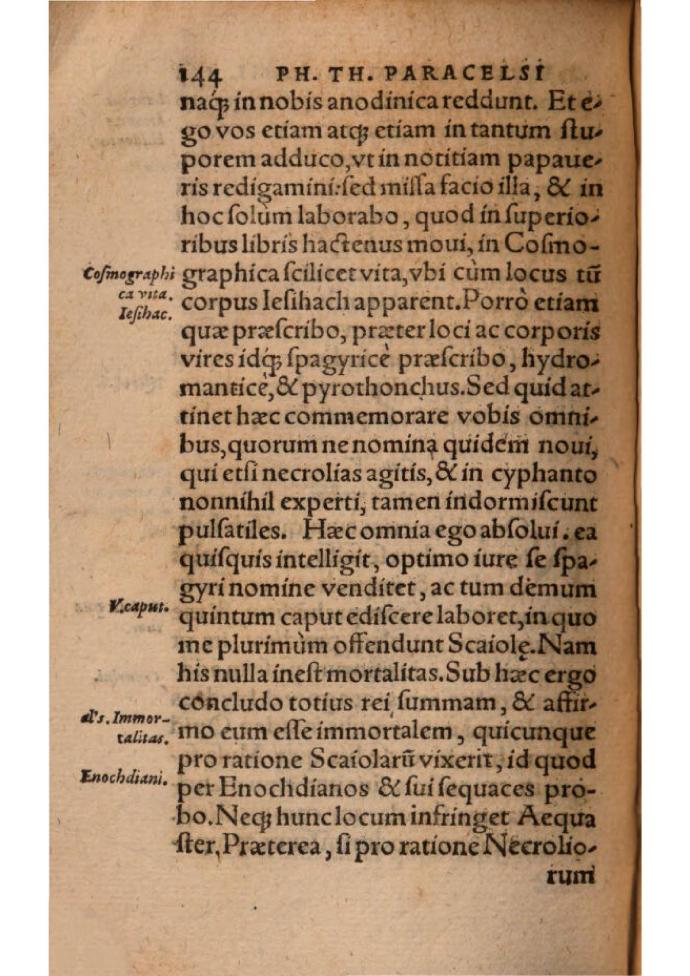 144 PH. TH. PARACELSI
naq́; in nobis anodinica reddunt. Et e-
go vos etiam atq; etiam in tantum ſtu-
porem adduco, vt in notitiam papaue-
ris redigamini: ſed miſſa facio illa, & in
hoc ſolùm laborabo, quod in ſuperio-
ribus libris hactenus moui, in Coſmo-
Coſmographi
ca vita.
Ieſihac.
graphica ſcilicet vita, vbi cùm locus tū
corpus Ieſihach apparent. Porrò etiam
quæ præſcribo, præter loci ac corporis
vires idq́; ſpagyricè præſcribo, hydro-
manticè, & pyrothonchus. Sed quid at-
tinet hæc commemorare vobis omni-
bus, quorum ne nomina quidem noui,
qui etſi necrolias agitis, & in cyphanto
nonnihil experti, tamen indormiſcunt
pulſatiles. Hæc omnia ego abſolui. ea
quiſquis intelligit, optimo iure ſe ſpa-
gyri nomine venditet, ac tum demum
V. caput.
quintum caput ediſcere laboret, in quo
me plurimùm offendunt Scaiolę. Nam
his nulla ineſt mortalitas. Sub hæc ergo
concludo totius rei ſummam, & affir-
Immor-
talitas.
mo eum eſſe immortalem, quicunque
pro ratione Scaiolarū vixerit, id quod
Enochdiani.
per Enochdianos & ſui ſequaces pro-
bo. Neq; hunc locum infringet Aequa
ſter, Præterea, ſi pro ratione Necrolio-
rum